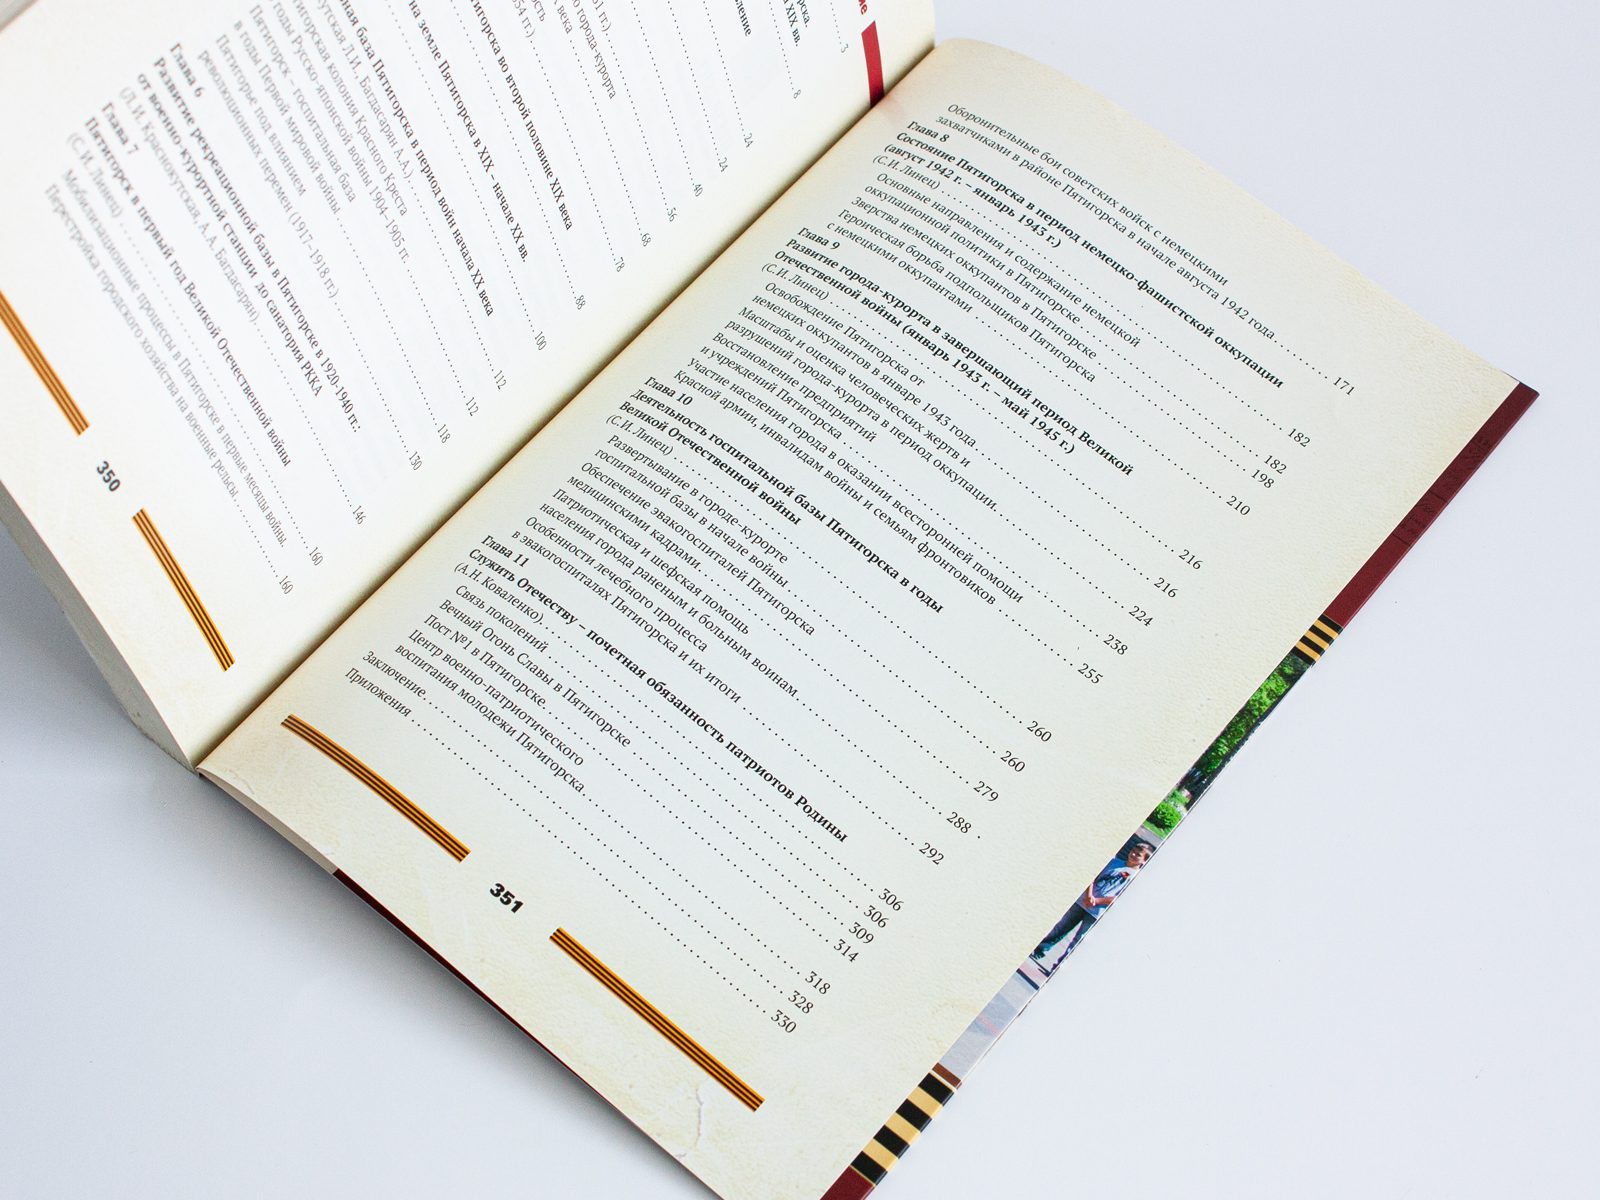 ление
3
8
24
24
40
56
68
78
88
100
112
112
118
130
146
160
160
города-курорта
Пятигорска во второй половине XIX века
на земле Пятигорска в XIX – начале XX вв.
база Пятигорска в период войн начала XX века
Л.И., Багдасарян А.А.)
Пятигорская колония Красного Креста
в годы Русско-японской войны 1904–1905 гг.
Пятигорск – госпитальная база
в годы Первой мировой войны
Пятигорье под влиянием
революционных перемен (1917–1918 гг.)
Глава 6
Развитие рекреационной базы в Пятигорске в 1920-1940 гг.:
от военно-курортной станции до санатория РККА
(Л.И. Краснокутская, А.А. Багдасарян)
Глава 7
Пятигорск в первый год Великой Отечественной войны
(С.И. Линец)
Мобилизационные процессы в Пятигорске в первые месяцы войны.
Перестройка городского хозяйства на военные рельсы.
350
Оборонительные бои советских войск с немецкими
захватчиками в районе Пятигорска в начале августа 1942 года 171
Глава 8
Состояние Пятигорска в период немецко-фашистской оккупации
(август 1942 г. – январь 1943 г.)
(С.И. Линец) 182
Основные направления и содержание немецкой
оккупационной политики в Пятигорске 182
Зверства немецких оккупантов в Пятигорске 198
Героическая борьба подпольщиков Пятигорска
с немецкими оккупантами 210
Глава 9
Развитие города-курорта в завершающий период Великой
Отечественной войны (январь 1943 г. – май 1945 г.)
(С.И. Линец) 216
Освобождение Пятигорска от
немецких оккупантов в январе 1943 года 216
Масштабы и оценка человеческих жертв и
разрушений города-курорта в период оккупации 224
Восстановление предприятий
и учреждений Пятигорска 238
Участие населения города в оказании всесторонней помощи
Красной армии, инвалидам войны и семьям фронтовиков 255
Глава 10
Деятельность госпитальной базы Пятигорска в годы
Великой Отечественной войны
(С.И. Линец) 260
Развертывание в городе-курорте
госпитальной базы в начале войны 260
Обеспечение эвакогоспиталей Пятигорска
медицинскими кадрами 279
Патриотическая и шефская помощь
населения города раненым и больным воинам 288
Особенности лечебного процесса
в эвакогоспиталях Пятигорска и их итоги 292
Глава 11
Служить Отечеству – почетная обязанность патриотов Родины
(А.Н. Коваленко) 306
Связь поколений 306
Вечный Огонь Славы в Пятигорске 309
Пост №1 в Пятигорске 314
Центр военно-патриотического
воспитания молодежи Пятигорска 318
Заключение 328
Приложения 330
351